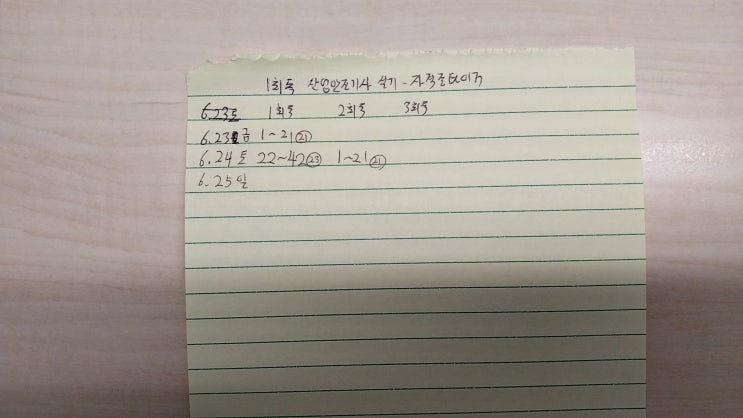 1회독 산업안전기사 실기 - 자격증
6.23토 1회독 2회독 3회독
6.23 금 1~21 ㉑
6.24 토 22~42 ㉓ 1~21 ㉑
6.25 일